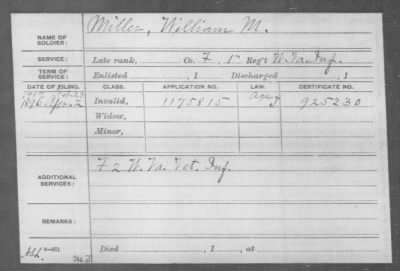 NAME OF SOLDIER: Miller, William M.
SERVICE: Late rank, Co. F, 1st Reg't W. Va. Inf.
TERM OF SERVICE: Enlisted , 1 Discharged , 1
DATE OF FILING. CLASS. APPLICATION NO. LAW. CERTIFICATE NO.
1896 Apr. 2 Invalid, 1175815 925230
Widow,
Minor,
ADDITIONAL SERVICES: F 2 W. Va. Vet. Inf.
REMARKS:
Died , 1 , at